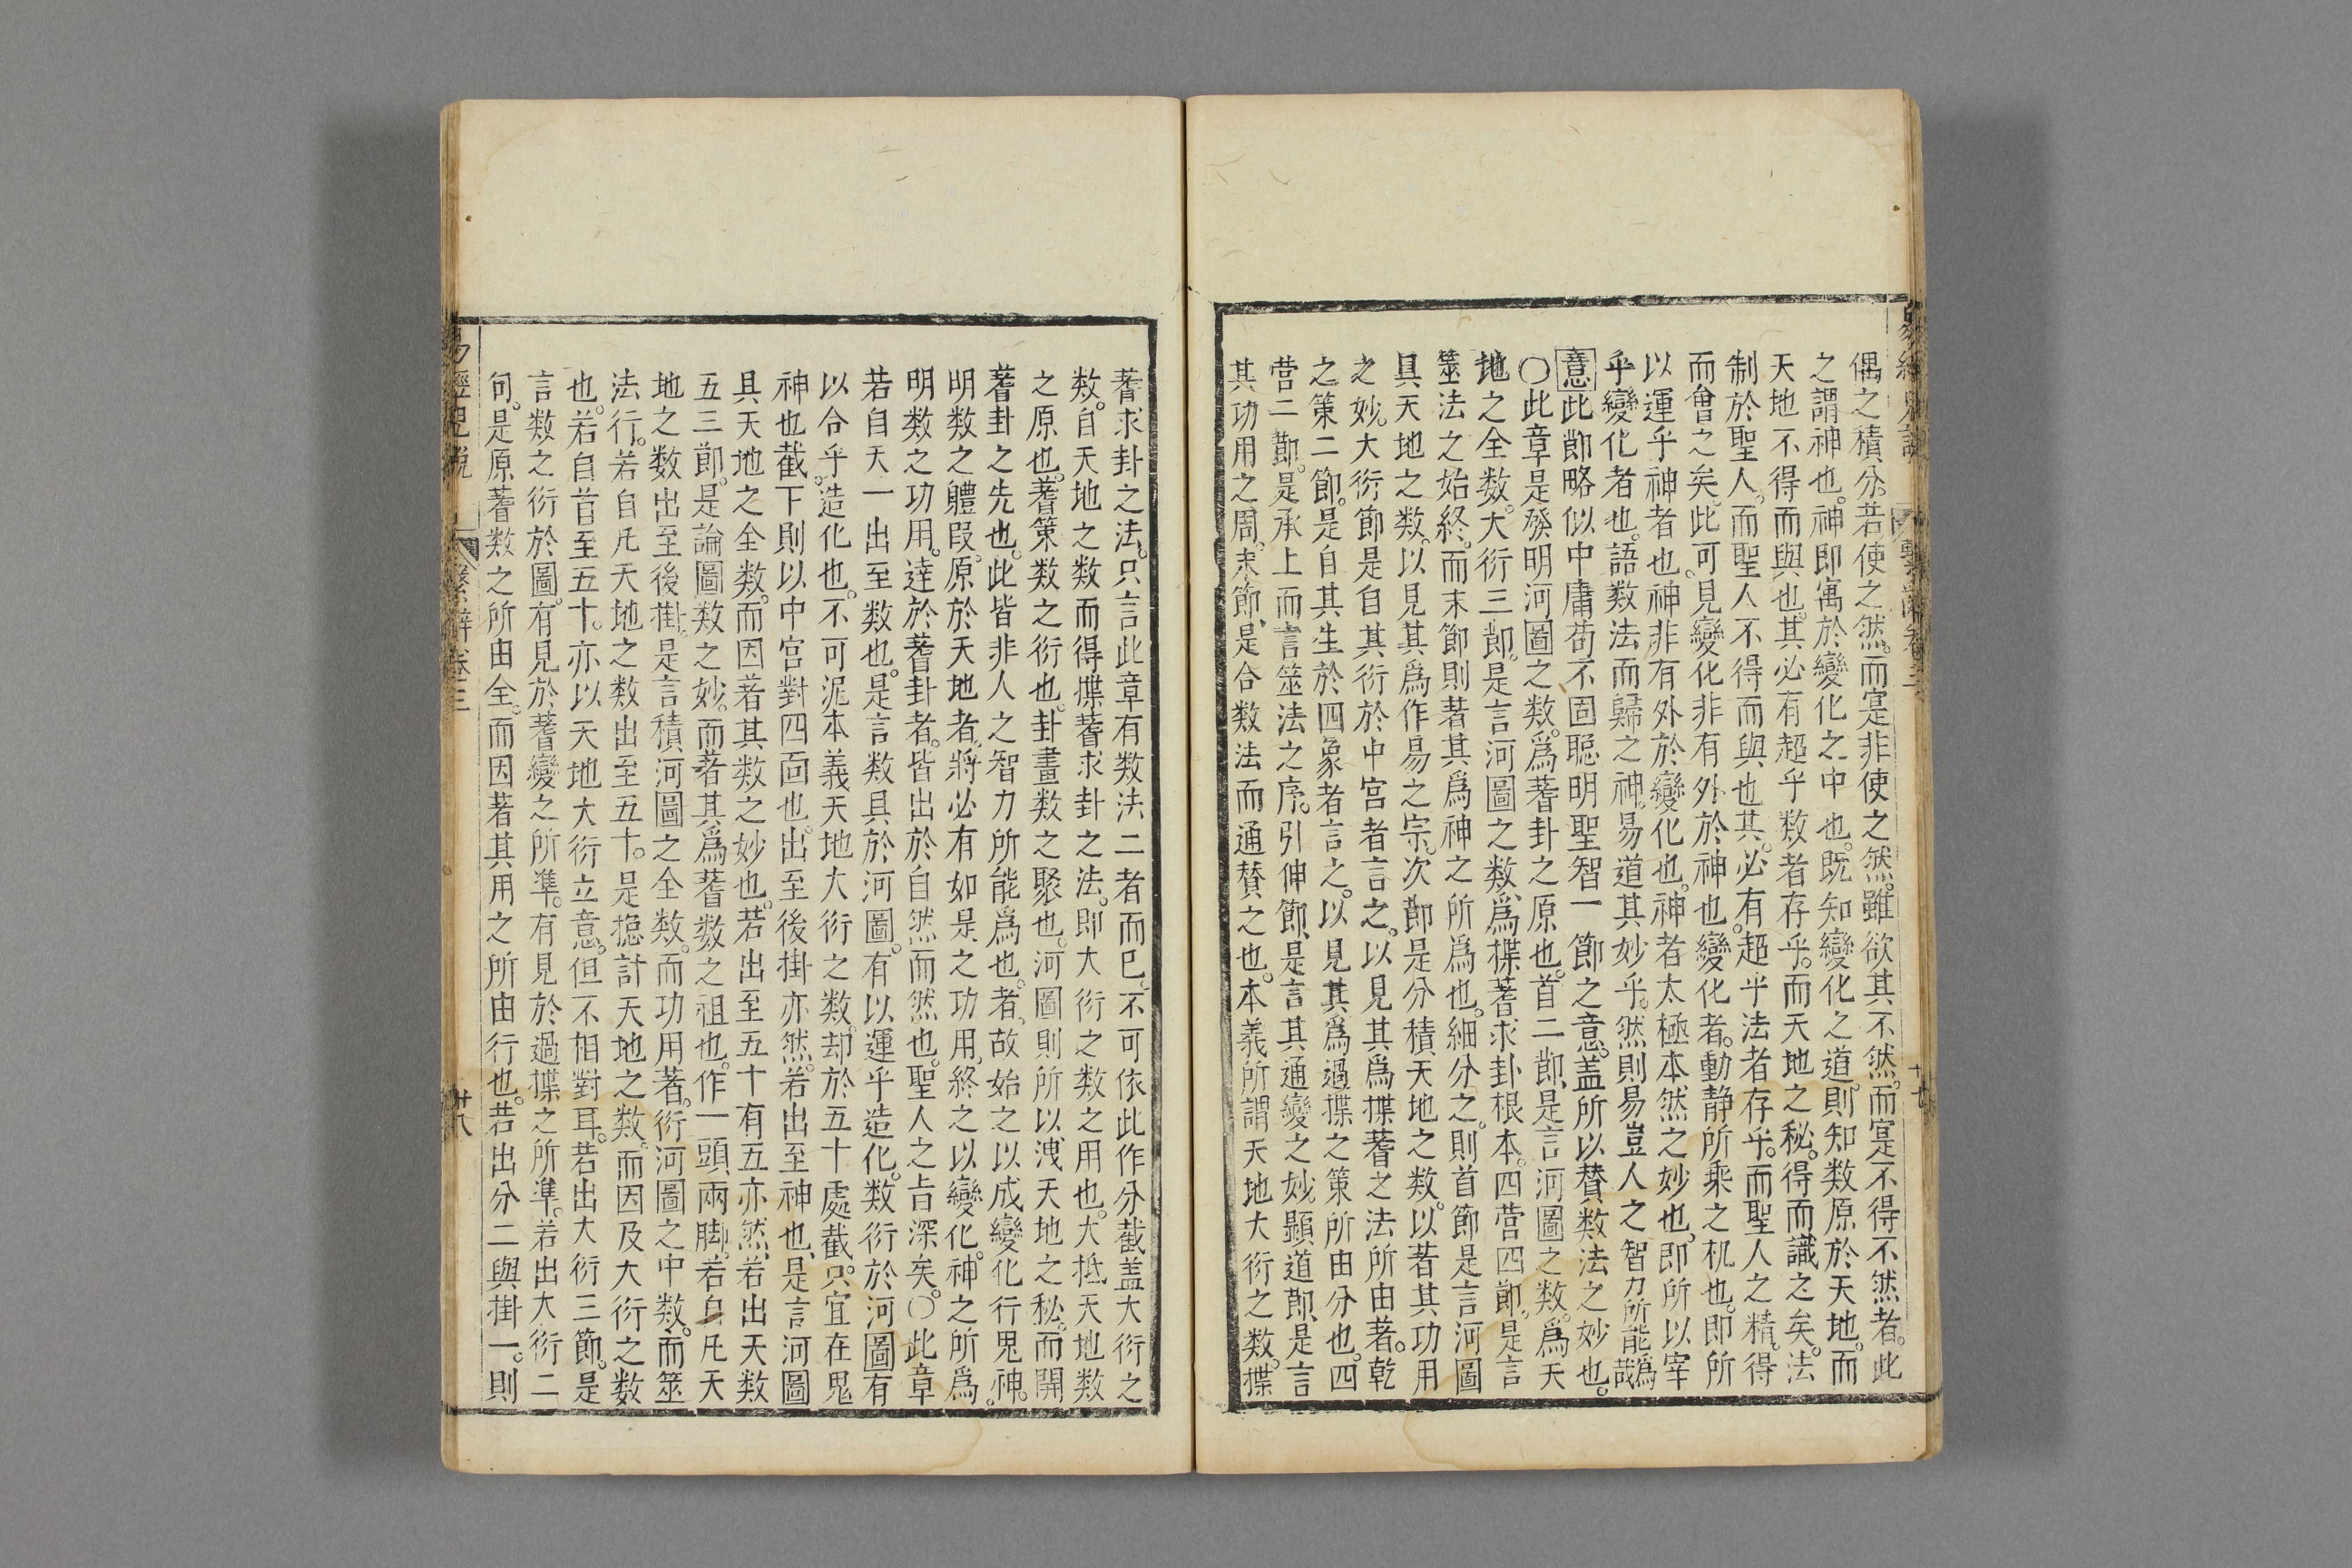 偶之積分。若使之然。而寔非使之然。雖欲其不然。而寔不得不然者。此
之謂神也。神即寓於變化之中也。既知變化之道。則知数原於天地。而
天地不得而與也。其必有超乎数者存乎。而天地之秘。得而識之矣。法
制於聖人。而聖人不得而與也其。必有。超乎法者存乎。而聖人之精。得
而會之矣。此可。見變化非有外於神也。變化者。動静所乘之机也。即所
以運乎神者也。神非有外於變化也。神者太極本然之妙也。即所以宰
乎變化者也。語数法而歸之神。易道其妙乎。然則易豈人之智力所能爲哉
意此節略似中庸苟不固聡明聖智一節之意。盖所以賛数法之妙也。
○此章是發明河圖之数。爲蓍卦之原也。首二節。是言河圖之数。爲天
地之全数。大衍三節。是言河圖之数。爲揲蓍求卦根本。四营四節。是言
筮法之始終。而末節則著其爲神之所爲也。細分之。則首節是言河圖
具天地之数。以見其爲作易之宗。次節是分積天地之数。以著其功用
之妙。大衍節是自其衍於中宮者言之。以見其爲揲蓍之法所由著。乾
之策二節。是自其生於四象者言之。以見其爲過揲之策所由分也。四
营二節。是承上而言筮法之序。引伸節。是言其通變之妙。顯道節。是言
其功用之周。末節。是合数法而通賛之也。本義所謂天地大衍之数。揲
蓍求卦之法。只言此章有数法二者而巳。不可依此作分截盖大衍之
数。自天地之数而得揲蓍求卦之法。即大衍之数之用也。大抵天地数
之原也。蓍策数之衍也。卦畫数之聚也。河圖則所以洩天地之秘。而開
蓍卦之先也。此皆非人之智力所能爲也。者。故始之以成變化行鬼神。
明数之體叚。原於天地者。將必有如是之功用。終之以變化。神之所爲。
明数之功用。達於蓍卦者。皆出於自然而然也。聖人之㫖深矣。○此章
若自天一出至数也。是言数具於河圖。有以運乎造化。数衍於河圖有
以合乎。造化也。不可泥本義天地大衍之数。却於五十處截。只宜在鬼
神也截。下則以中宮對四面也。出至後掛亦然。若出至神也、是言河圖
具天地之全数。而因著其数之妙也。若出至五十有五亦然、若出天数
五三節。是論圖数之妙。而著其爲蓍数之祖也。作一頭兩脚。若自凡天
地之数出至後掛。是言積河圖之全数。而功用著。衍河圖之中数。而筮
法行。若自凡天地之数出至五十。是搃計天地之数。而因及大衍之数
也。若自首至五十。亦以天地大衍立意。但不相對耳。若出大衍三節。是
言数之衍於圖。有見於蓍變之所準。有見於過揲之所準。若出大衍二
句。是原蓍数之所由全。而因著其用之所由行也。若出分二與掛一。則
易經兒說
繫辭
卷三
廿八